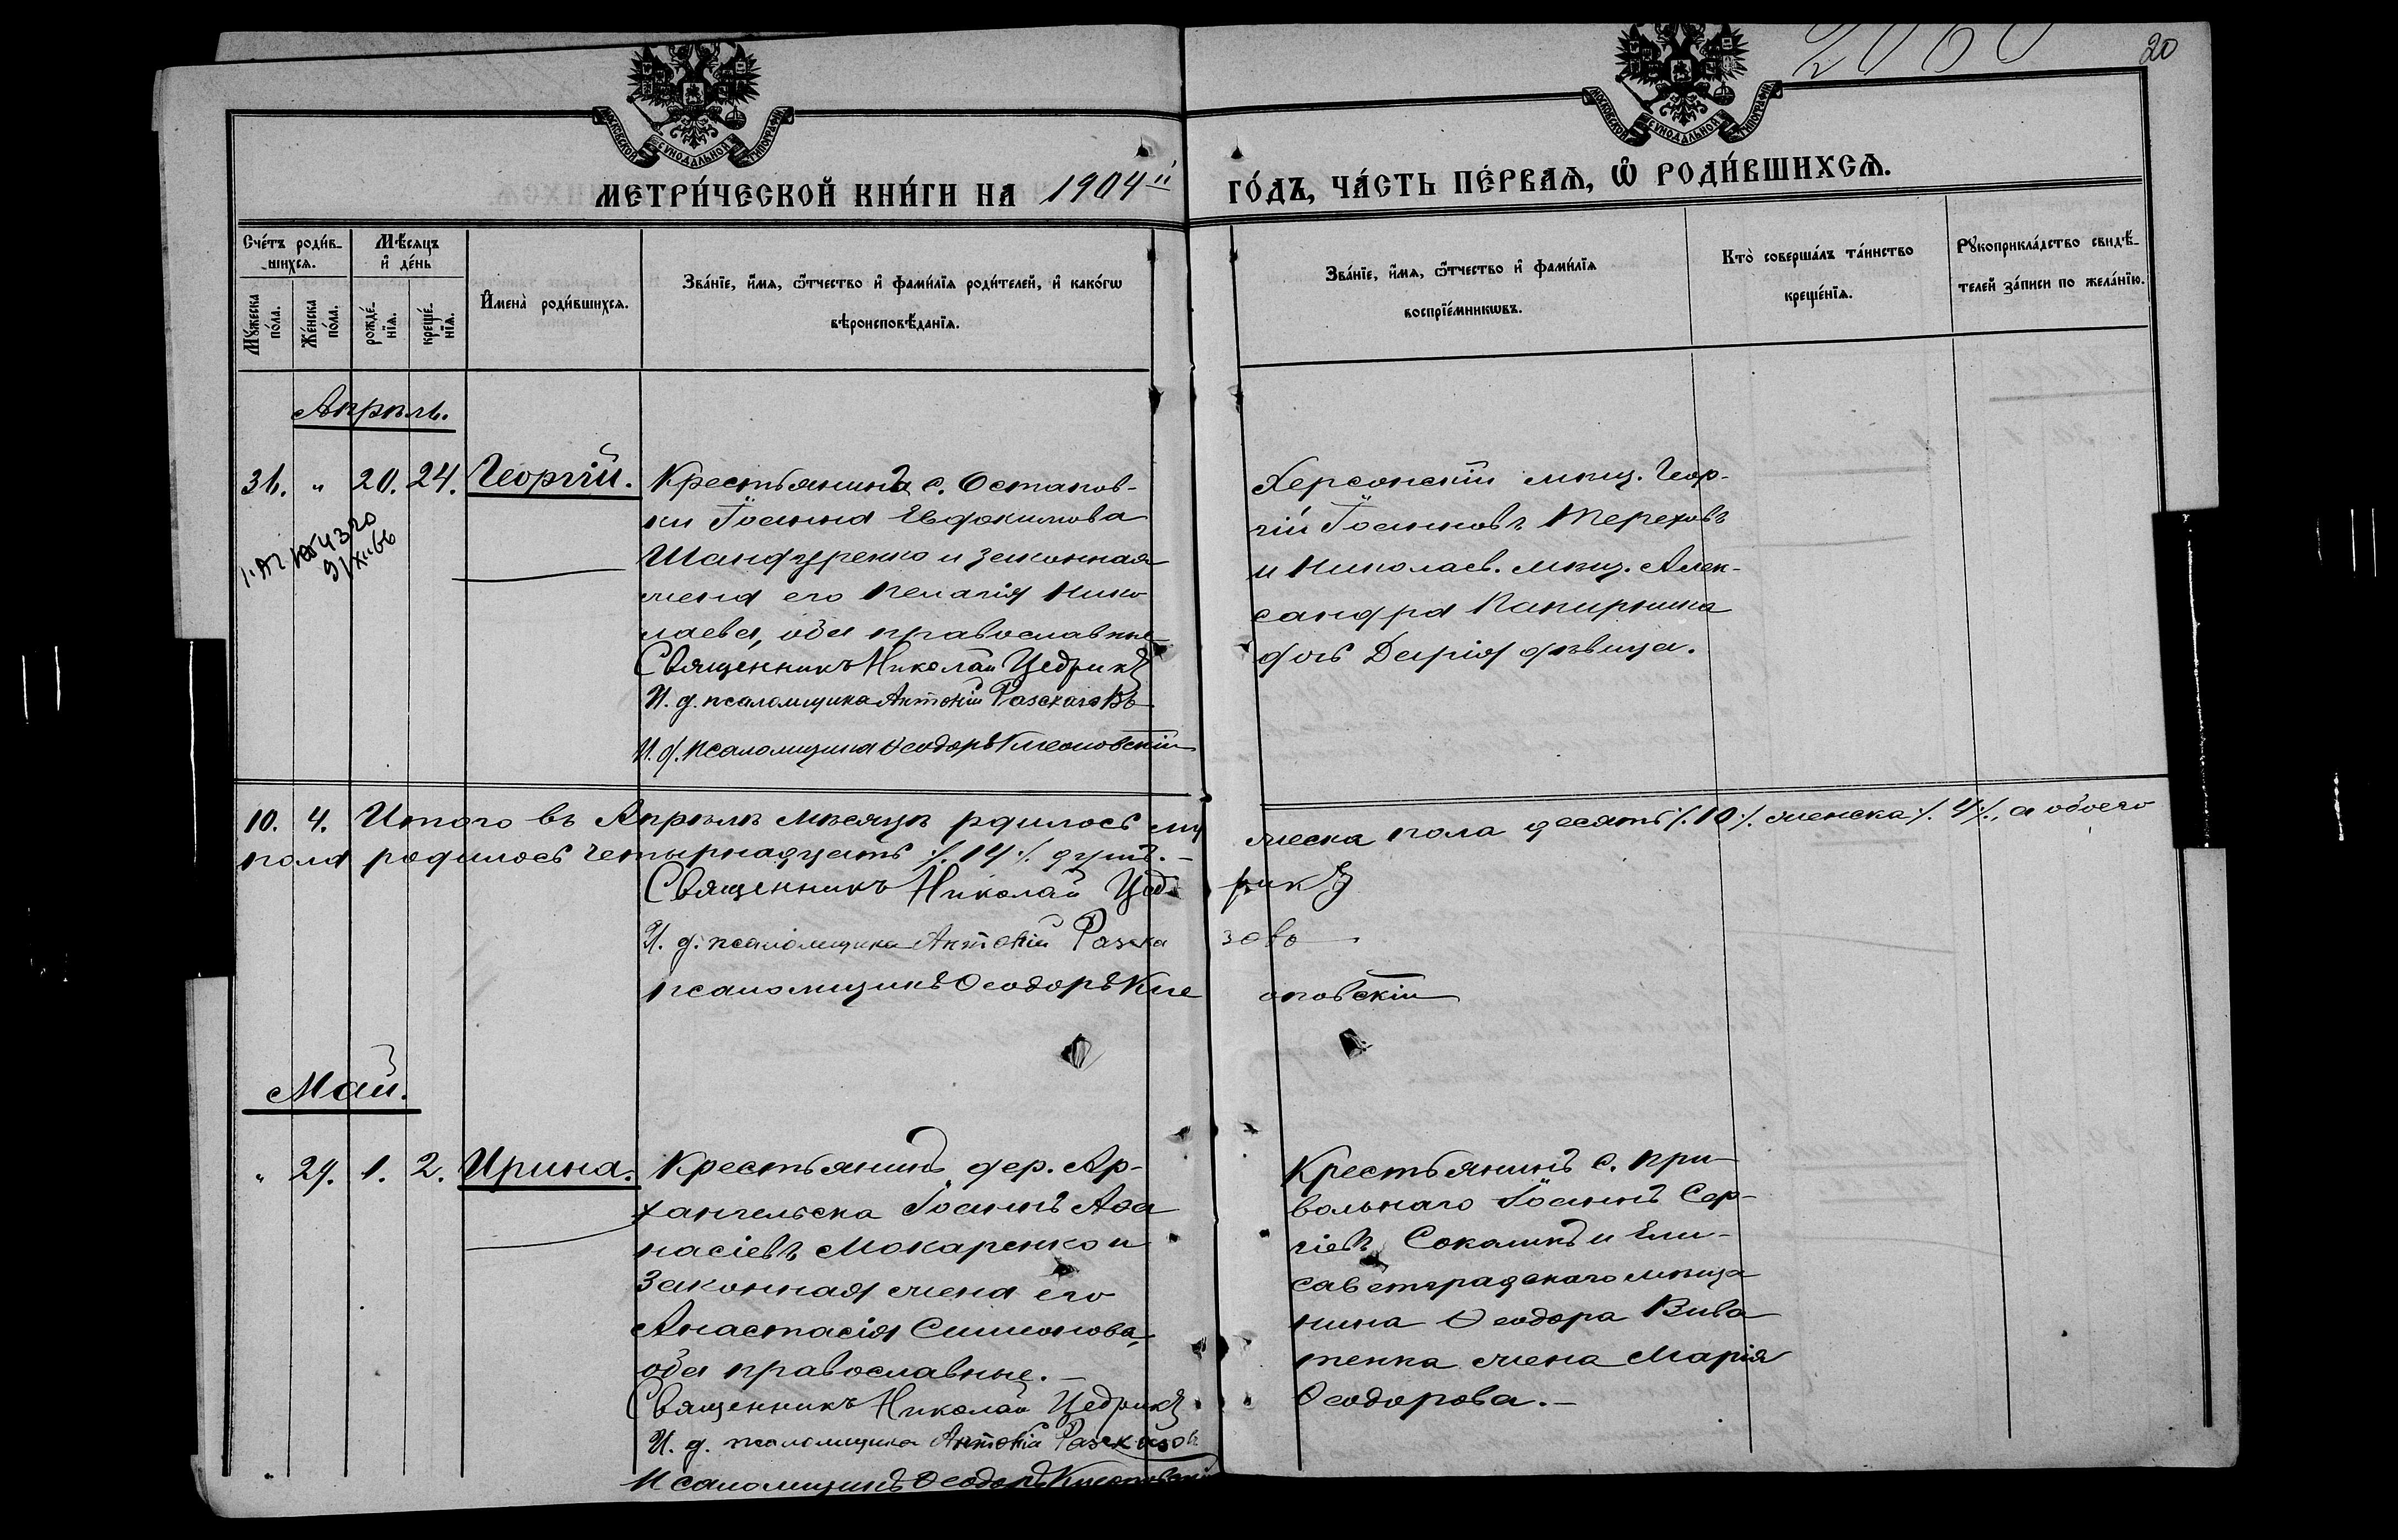 2060
20
МОСКОВСКОЙ СѴНОДАЛЬНОЙ ТИПОГРАФІИ
МОСКОВСКОЙ СѴНОДАЛЬНОЙ ТИПОГРАФІИ
МЕТРИ́ЧЕСКОЙ КНИ́ГИ НА 1904й ГО́ДЪ, ЧА́СТЬ ПЕ́РВАѦ, Ѡ҆ РОДИ́ВШИХСѦ.
Сче́тъ роди́в-
шихсѧ.
Мꙋ́жеска по́ла.
Же́нска по́ла.
Мѣ́сѧцъ и҆ де́нь
рожде́-нїѧ.
креще́-нїѧ.
И҆мена̀ роди́вшихсѧ.
Зва́нїе, и҆́мѧ, ѻ҆́тчество и҆ фами́лїѧ роди́телей, и҆ како́гѡ
вѣроисповѣ́данїѧ.
Зва́нїе, и҆́мѧ, ѻ҆́тчество и҆ фами́лїѧ
воспрїе́мникѡвъ.
Кто̀ соверша́лъ та́инство
креще́нїѧ.
Рꙋкоприкла́дство свидѣ́-
телей за́писи по жела́нїю.
Апрѣль.
31. " 20. 24. Георгій.
Крестьянина с. Остапов-
ки Іоанна Евдокимова
Шандуренко и законная
жена его Пелагія Нико
лаева, оба православные
Священникъ Николай Цедрикъ
И. д. псаломщика Антоній Разсказовъ
И. д. псаломщика Ѳеодоръ Клеоповскій
Херсонскій мѣщ. Геор-
гій Іоанновъ Тереховъ
и Николаев. мѣщ. Алек-
сандра Папирника
дочь Дарія дѣвица.
10. 4. Итого въ Апрѣлѣ мѣсяцѣ рдилось му жеска пола десять ./.10./. женска ./. 4 ./., а обоего
пола родилось четырнадцать ./. 14 ./. душъ.-
Священникъ Николай Цедрикъ
И. д. псаломщика Антоній Разсказовъ
псаломщикъ Ѳеодоръ Клеоповскій
Май.
" 29. 1. 2. Ирина.
Крестьянинъ дер. Ар-
хангельска Іоаннъ Аѳа
насіевъ Мокаренко и
законная жена его
Анастасія Симонова,
оба православные.-
Священникъ Николай Цедрикъ
И. д. псаломщика Антоній Разсказовъ
Псаломщикъ Ѳеодоръ Клеоповскій
Крестьянинъ с. При-
вольнаго Іоаннъ Сер-
гіевъ Сокаликъ и Ели-
саветградскаго мѣща
нина Ѳеодора
жена Марія
Ѳеодорова.-